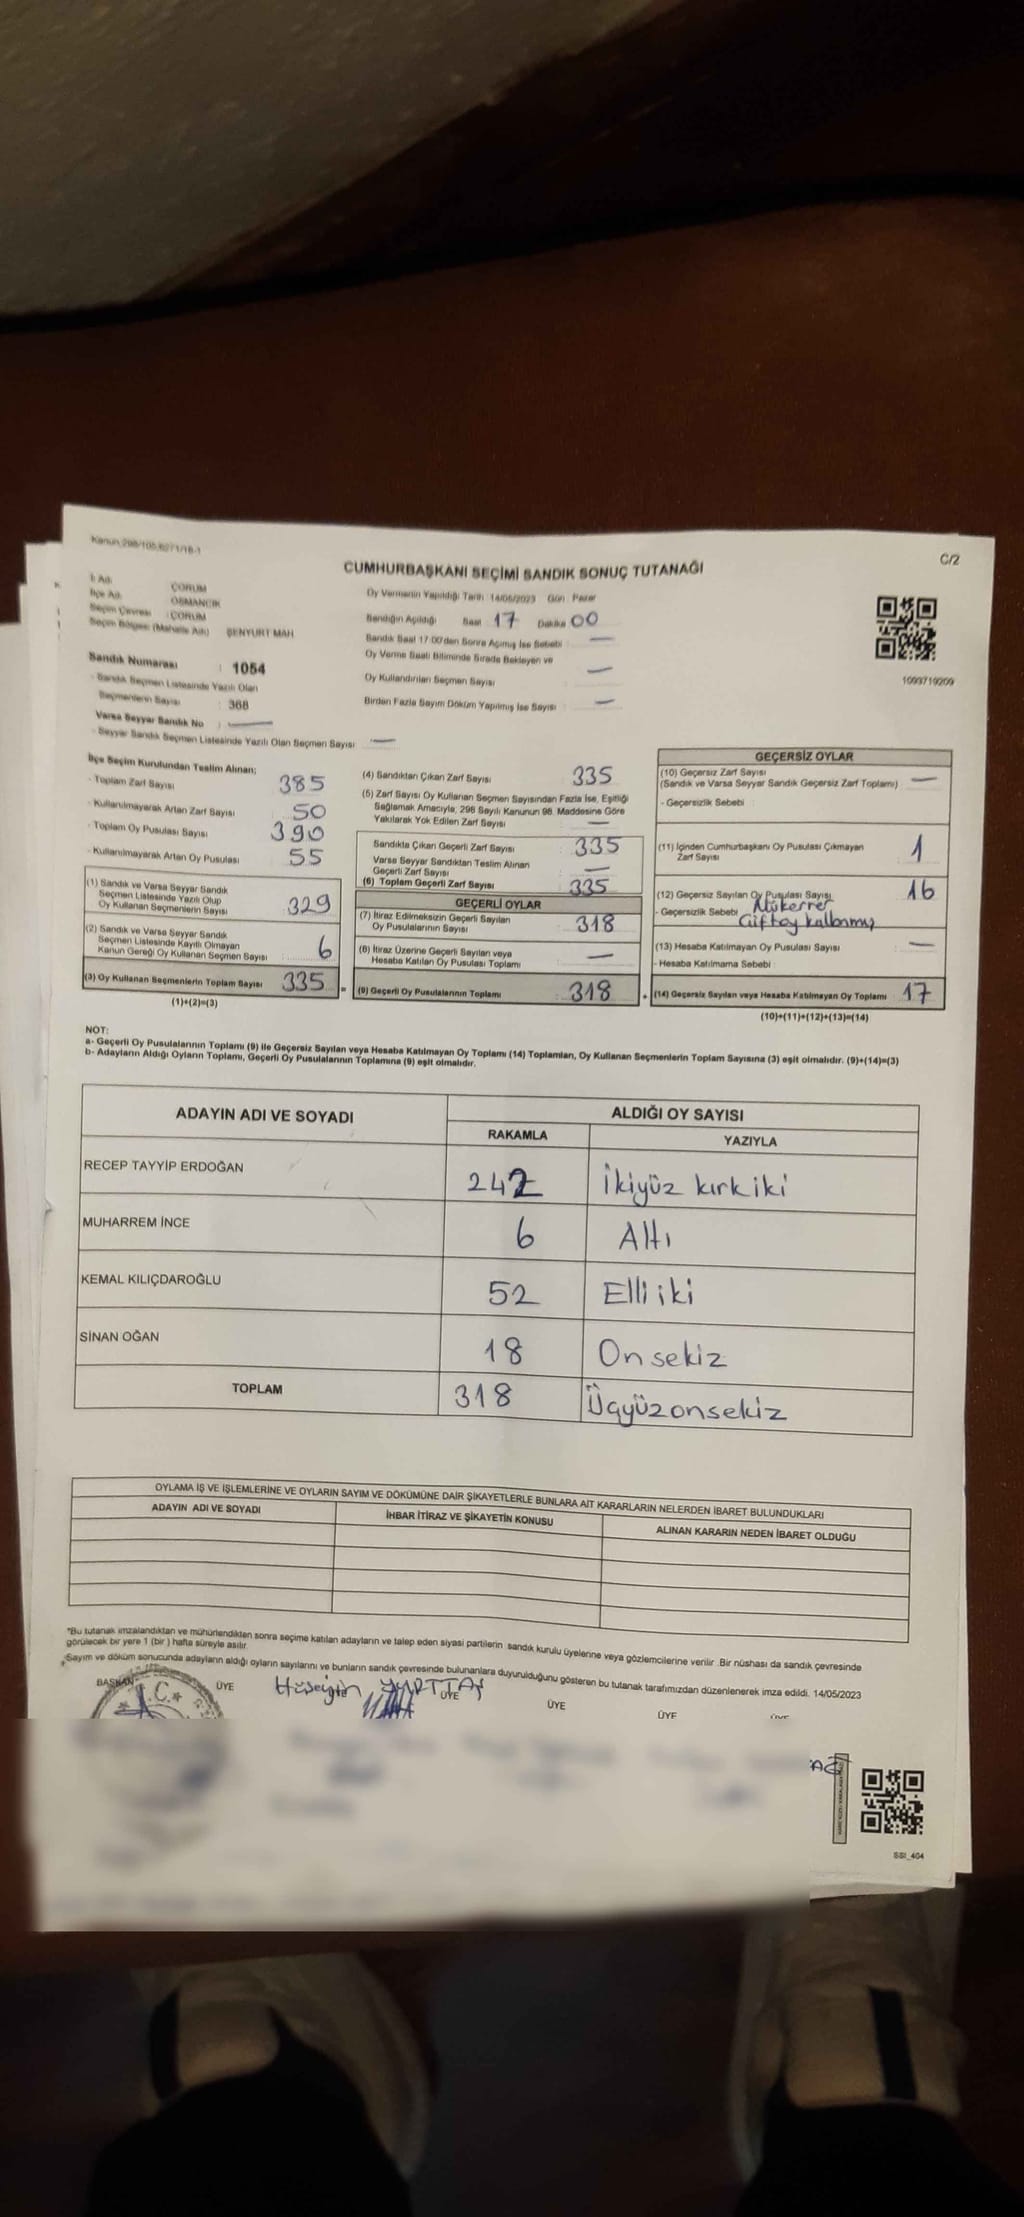 Kanun:298/105,6271/18-1
C/2
CUMHURBAŞKANI SEÇİMİ SANDIK SONUÇ TUTANAĞI
İl Adı : ÇORUM
İlçe Adı : OSMANCIK
Seçim Çevresi : ÇORUM
Seçim Bölgesi (Mahalle Adı) : ŞENYURT MAH
Oy Vermenin Yapıldığı Tarih : 14/05/2023 Gün : Pazar
Sandığın Açıldığı Saat 17 Dakika 00
Sandık Saat 17:00'den Sonra Açımış İse Sebebi : —
Oy Verme Saati Bitiminde Sırada Bekleyen ve
Oy Kullandırılan Seçmen Sayısı —
Birden Fazla Sayım Döküm Yapılmış İse Sayısı : —
1093719209
Sandık Numarası : 1054
- Sandık Seçmen Listesinde Yazılı Olan
Seçmenlerin Sayısı : 368
Varsa Seyyar Sandık No : —
- Seyyar Sandık Seçmen Listesinde Yazılı Olan Seçmen Sayısı —
İlçe Seçim Kurulundan Teslim Alınan;
- Toplam Zarf Sayısı 385
- Kullanılmayarak Artan Zarf Sayısı 50
- Toplam Oy Pusulası Sayısı 390
- Kullanılmayarak Artan Oy Pusulası 55
(1) Sandık ve Varsa Seyyar Sandık
Seçmen Listesinde Yazılı Olup
Oy Kullanan Seçmenlerin Sayısı 329
(2) Sandık ve Varsa Seyyar Sandık
Seçmen Listesinde Kayıtlı Olmayan
Kanun Gereği Oy Kullanan Seçmen Sayısı : 6
(3) Oy Kullanan Seçmenlerin Toplam Sayısı 335
(1)+(2)=(3)
=
(4) Sandıktan Çıkan Zarf Sayısı 335
(5) Zarf Sayısı Oy Kullanan Seçmen Sayısından Fazla İse, Eşitliği
Sağlamak Amacıyla, 298 Sayılı Kanunun 98. Maddesine Göre
Yakılarak Yok Edilen Zarf Sayısı —
Sandıkta Çıkan Geçerli Zarf Sayısı 335
Varsa Seyyar Sandıktan Teslim Alınan
Geçerli Zarf Sayısı —
(6) Toplam Geçerli Zarf Sayısı 335
GEÇERLİ OYLAR
(7) İtiraz Edilmeksizin Geçerli Sayılan
Oy Pusulalarının Sayısı 318
(8) İtiraz Üzerine Geçerli Sayılan veya
Hesaba Katılan Oy Pusulası Toplamı —
(9) Geçerli Oy Pusulalarının Toplamı 318
+
GEÇERSİZ OYLAR
(10) Geçersiz Zarf Sayısı —
(Sandık ve Varsa Seyyar Sandık Geçersiz Zarf Toplamı)
- Geçersizlik Sebebi :
(11) İçinden Cumhurbaşkanı Oy Pusulası Çıkmayan
Zarf Sayısı 1
(12) Geçersiz Sayılan Oy Pusulası Sayısı 16
- Geçersizlik Sebebi Mükerrer
Çift oy
(13) Hesaba Katılmayan Oy Pusulası Sayısı —
- Hesaba Katılmama Sebebi :
(14) Geçersiz Sayılan veya Hesaba Katılmayan Oy Toplamı 17
(10)+(11)+(12)+(13)=(14)
NOT:
a- Geçerli Oy Pusulalarının Toplamı (9) ile Geçersiz Sayılan veya Hesaba Katılmayan Oy Toplamı (14) Toplamları, Oy Kullanan Seçmenlerin Toplam Sayısına (3) eşit olmalıdır. (9)+(14)=(3)
b- Adayların Aldığı Oyların Toplamı, Geçerli Oy Pusulalarının Toplamına (9) eşit olmalıdır.
ADAYIN ADI VE SOYADI
ALDIĞI OY SAYISI
RAKAMLA YAZIYLA
RECEP TAYYİP ERDOĞAN 242 İkiyüz kırk iki
MUHARREM İNCE 6 Altı
KEMAL KILIÇDAROĞLU 52 Elli iki
SİNAN OĞAN 18 On sekiz
TOPLAM 318 Üçyüz onsekiz
OYLAMA İŞ VE İŞLEMLERİNE VE OYLARIN SAYIM VE DÖKÜMÜNE DAİR ŞİKAYETLERLE BUNLARA AİT KARARLARIN NELERDEN İBARET BULUNDUKLARI
ADAYIN ADI VE SOYADI İHBAR İTİRAZ VE ŞİKAYETİN KONUSU ALINAN KARARIN NEDEN İBARET OLDUĞU
*Bu tutanak imzalandıktan ve mühürlendikten sonra seçime katılan adayların ve talep eden siyasi partilerin sandık kurulu üyelerine veya gözlemcilerine verilir. Bir nüshası da sandık çevresinde
görülecek bir yere 1 (bir ) hafta süreyle asılır.
*Sayım ve döküm sonucunda adayların aldığı oyların sayılarını ve bunların sandık çevresinde bulunanlara duyurulduğunu gösteren bu tutanak tarafımızdan düzenlenerek imza edildi. 14/05/2023
BAŞKAN ÜYE ÜYE ÜYE ÜYE ÜYE
T.C.
SSI_404